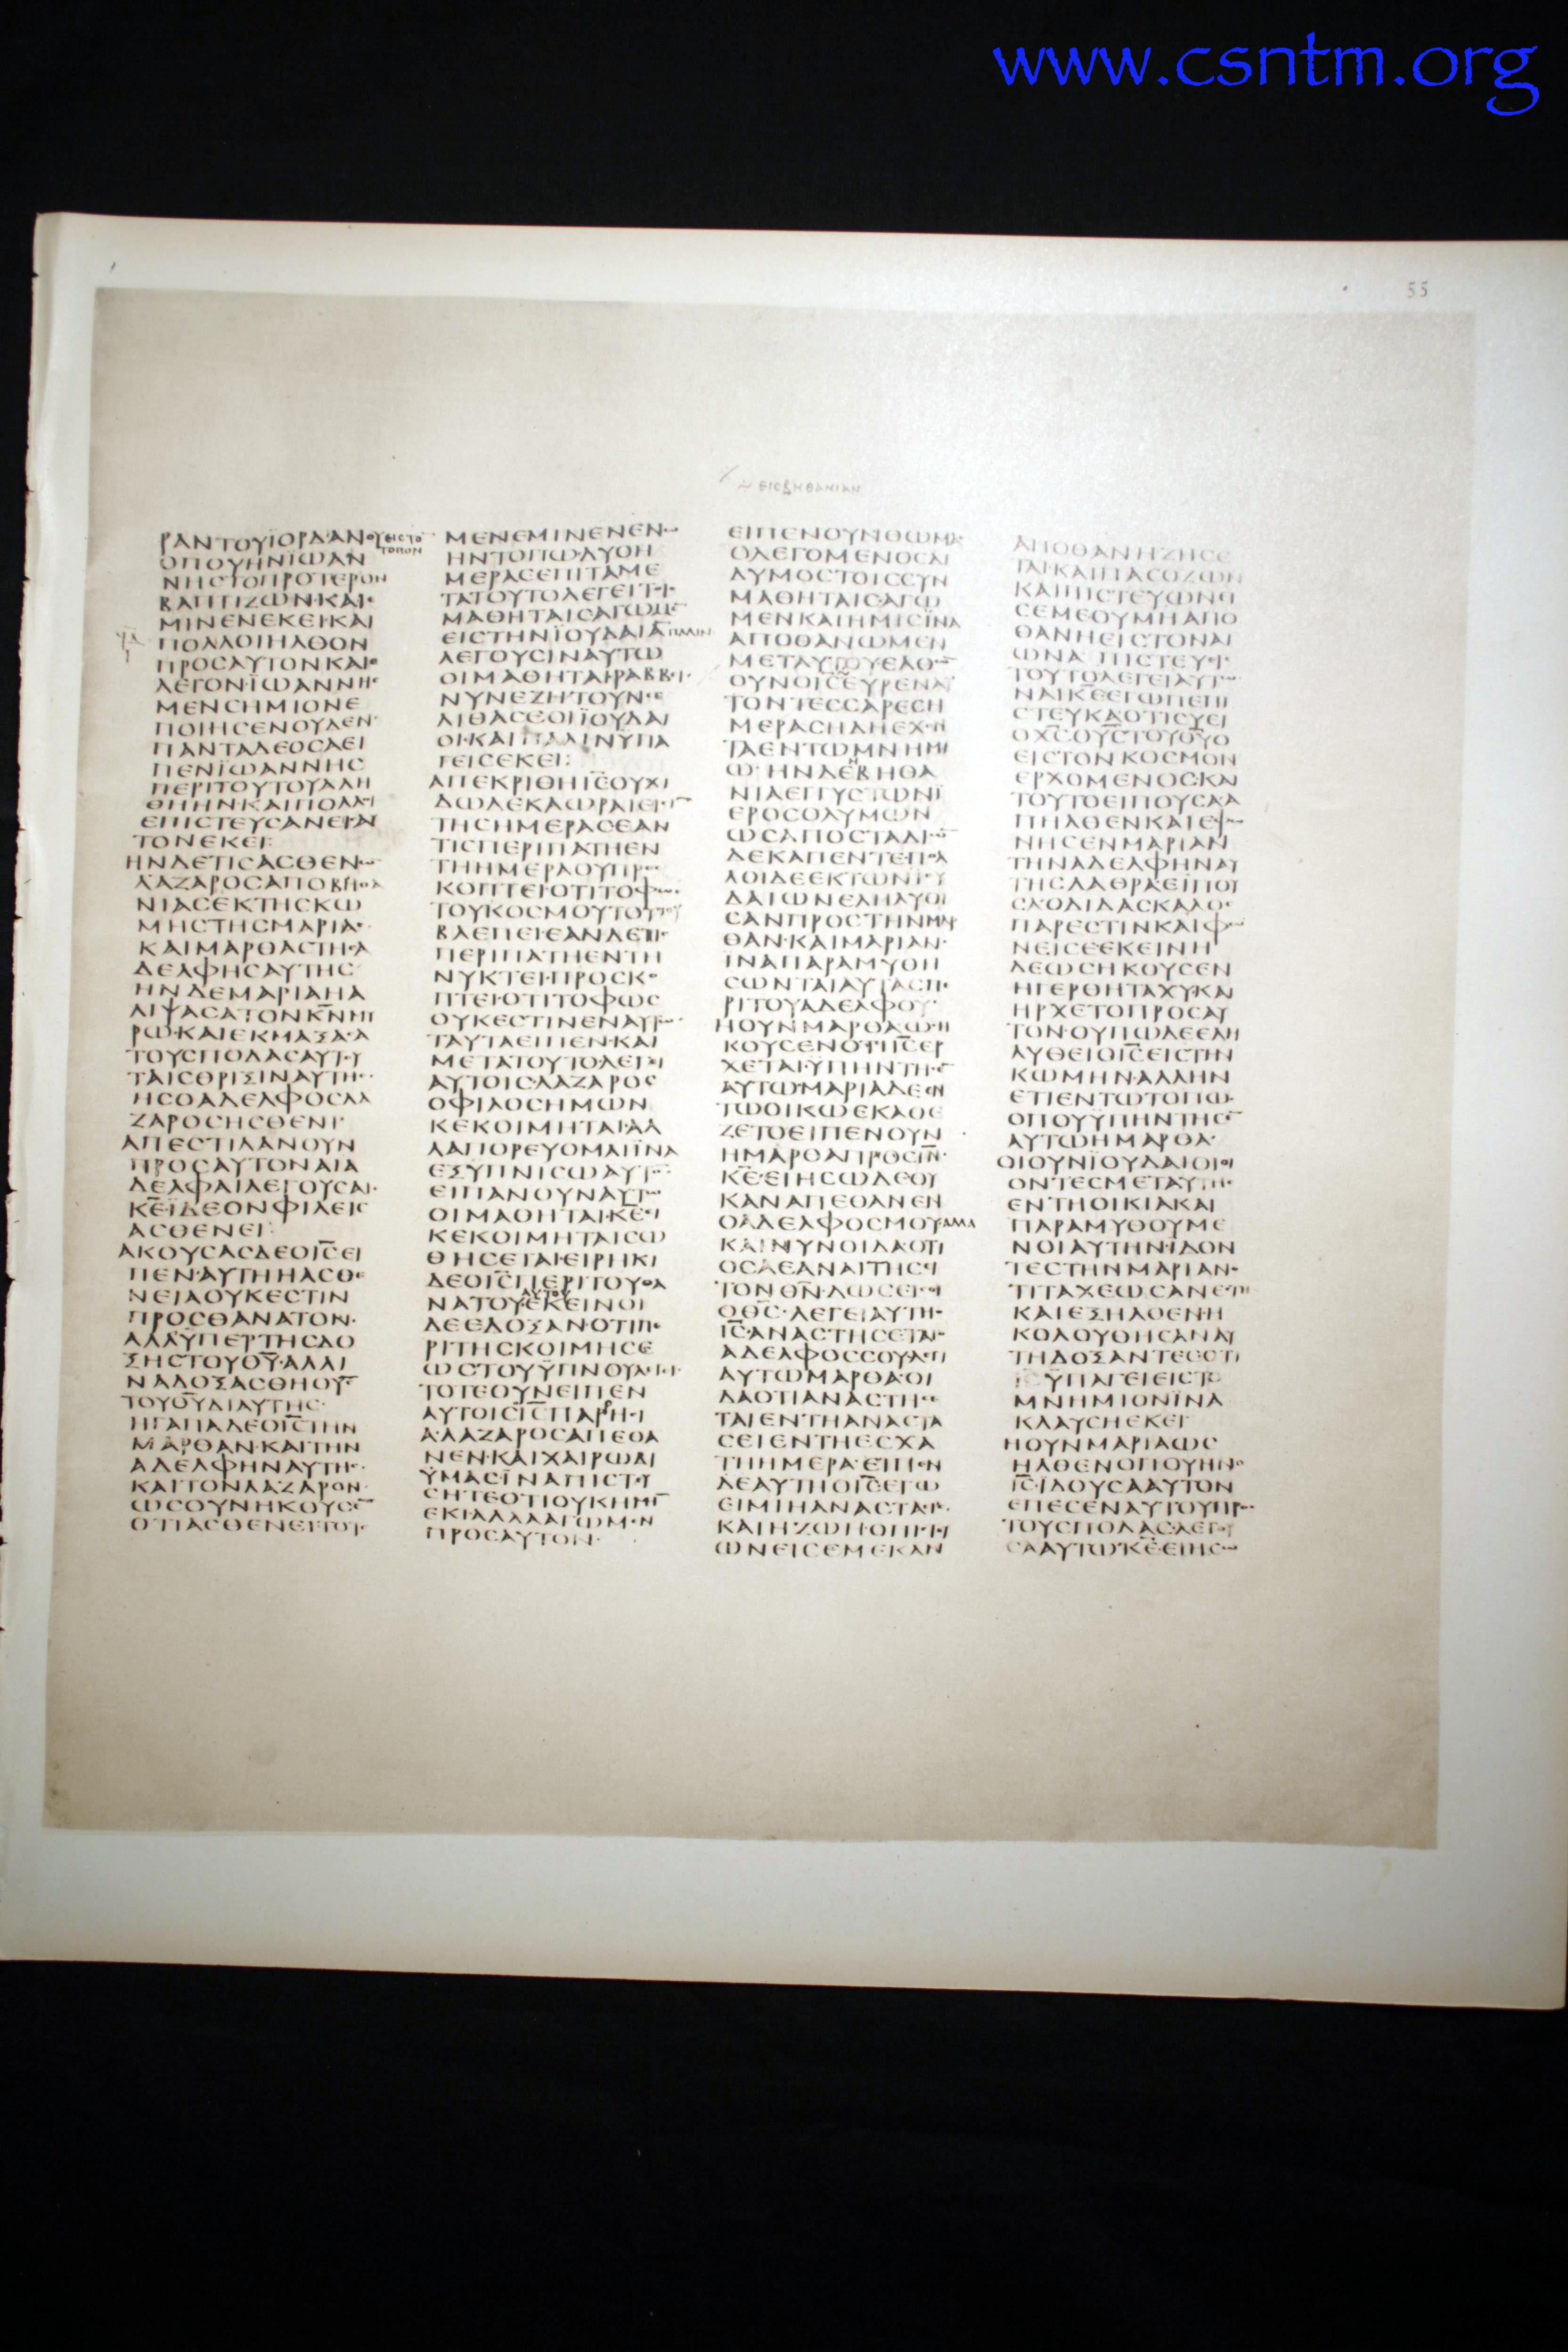 www.csntm.org
55
εις βηθανιαν
ΡΑΝΤΟΥΪΟΡΔΑΝΟΥ εις το τοπον
ΟΠΟΥΗΝΪΩΑΝ
ΝΗΣΤΟΠΡΟΤΕΡΟΝ
ΒΑΠΤΙΖΩΝ·ΚΑΙΕ
ΜΙΝΕΝΕΚΕΙΚΑΙ
ΠΟΛΛΟΙΗΛΘΟΝ
ΠΡΟϹΑΥΤΟΝΚΑΙΕ
ΛΕΓΟΝ·ΪΩΑΝΝΗϹ
ΜΕΝϹΗΜΙΟΝΕ
ΠΟΙΗϹΕΝΟΥΔΕΝ
ΠΑΝΤΑΔΕΟϹΑΕΙ
ΠΕΝΪΩΑΝΝΗϹ
ΠΕΡΙΤΟΥΤΟΥΑΛΗ
ΘΗΗΝ·ΚΑΙΠΟΛΛΟΙ
ΕΠΙϹΤΕΥϹΑΝΕΙϹΑΥ
ΤΟΝΕΚΕΙ:
ΗΝΔΕΤΙϹΑϹΘΕΝΩ
ΛΑΖΑΡΟϹΑΠΟΒΗΘΑ
ΝΙΑϹΕΚΤΗϹΚΩ
ΜΗϹΤΗϹΜΑΡΙΑϹ
ΚΑΙΜΑΡΘΑϹΤΗϹΑ
ΔΕΛΦΗϹΑΥΤΗϹ
ΗΝΔΕΜΑΡΙΑΗΑ
ΛΙΨΑϹΑΤΟΝΚ̅Ν̅ΜΥ
ΡΩ·ΚΑΙΕΚΜΑΞΑϹΑ
ΤΟΥϹΠΟΔΑϹΑΥΤΟΥ
ΤΑΙϹΘΡΙΞΙΝΑΥΤΗϹ
ΗϹΟΑΔΕΛΦΟϹΛΑ
ΖΑΡΟϹΗϹΘΕΝΙ·
ΑΠΕϹΤΙΛΑΝΟΥΝ
ΠΡΟϹΑΥΤΟΝΑΙΑ
ΔΕΛΦΑΙΛΕΓΟΥϹΑΙ·
Κ̅Ε̅ΪΔΕΟΝΦΙΛΕΙϹ
ΑϹΘΕΝΕΙ:
ΑΚΟΥϹΑϹΔΕΟΙ̅Ϲ̅ΕΙ
ΠΕΝ·ΑΥΤΗΗΑϹΘΕ
ΝΕΙΑΟΥΚΕϹΤΙΝ
ΠΡΟϹΘΑΝΑΤΟΝ·
ΑΛΛΫΠΕΡΤΗϹΔΟ
ΞΗϹΤΟΥΘ̅Υ̅·ΑΛΛΙ
ΝΑΔΟΞΑϹΘΗΟΥ̅Ϲ̅
ΤΟΥΘ̅Υ̅ΔΙΑΥΤΗϹ·
ΗΓΑΠΑΔΕΟΙ̅Ϲ̅ΤΗΝ
ΜΑΡΘΑΝ·ΚΑΙΤΗΝ
ΑΔΕΛΦΗΝΑΥΤΗϹ·
ΚΑΙΤΟΝΛΑΖΑΡΟΝ·
ΩϹΟΥΝΗΚΟΥϹΕ̅
ΟΤΙΑϹΘΕΝΕΙ·ΤΟΤΕ
ΜΕΝΕΜΙΝΕΝΕΝΩ
ΗΝΤΟΠΩ·ΔΥΟΗ
ΜΕΡΑϹΕΠΙΤΑΜΕ
ΤΑΤΟΥΤΟΛΕΓΕΙΤΟΙϹ
ΜΑΘΗΤΑΙϹΑΓΩΜΕ̅
ΕΙϹΤΗΝΪΟΥΔΑΙΑ̅ παλιν
ΛΕΓΟΥϹΙΝΑΥΤΩ
ΟΙΜΑΘΗΤΑΙ·ΡΑΒΒΕΙ·
ΝΥΝΕΖΗΤΟΥΝϹΕ
ΛΙΘΑϹΕΟΙΪΟΥΔΑΙ
ΟΙ·ΚΑΙΠΑΛΙΝΫΠΑ
ΓΕΙϹΕΚΕΙ:
ΑΠΕΚΡΙΘΗΙ̅Ϲ̅ΟΥΧΙ
ΔΩΔΕΚΑΩΡΑΙΕΙϹΙ̅
ΤΗϹΗΜΕΡΑϹΕΑΝ
ΤΙϹΠΕΡΙΠΑΤΗΕΝ
ΤΗΗΜΕΡΑΟΥΠΡΟϹ
ΚΟΠΤΕΙ·ΟΤΙΤΟΦΩϹ
ΤΟΥΚΟϹΜΟΥΤΟΥΤΟΥ
ΒΛΕΠΕΙ·ΕΑΝΔΕΤΙϹ
ΠΕΡΙΠΑΤΗΕΝΤΗ
ΝΥΚΤΕΙ·ΠΡΟϹΚΟ
ΠΤΕΙ·ΟΤΙΤΟΦΩϹ
ΟΥΚΕϹΤΙΝΕΝΑΥΤΩ
ΤΑΥΤΑΕΙΠΕΝ·ΚΑΙ
ΜΕΤΑΤΟΥΤΟΛΕΓΕΙ
ΑΥΤΟΙϹ·ΛΑΖΑΡΟϹ
ΟΦΙΛΟϹΗΜΩΝ
ΚΕΚΟΙΜΗΤΑΙ·ΑΛ
ΛΑΠΟΡΕΥΟΜΑΙΪΝΑ
ΕΞΥΠΝΙϹΩΑΥΤΟ̅
ΕΙΠΑΝΟΥΝΑΥΤΩ
ΟΙΜΑΘΗΤΑΙ·Κ̅Ε̅ΕΙ
ΚΕΚΟΙΜΗΤΑΙϹΩ
ΘΗϹΕΤΑΙ·ΕΙΡΗΚΙ
ΔΕΟΙ̅Ϲ̅ΠΕΡΙΤΟΥΘΑ
ΝΑΤΟΥ αυτου ΕΚΕΙΝΟΙ
ΔΕΕΔΟΞΑΝ·ΟΤΙΠΕ
ΡΙΤΗϹΚΟΙΜΗϹΕ
ΩϹΤΟΥΫΠΝΟΥΛΕΓΕΙ
ΤΟΤΕΟΥΝΕΙΠΕΝ
ΑΥΤΟΙϹΙ̅Ϲ̅ΠΑΡΡΗϹΙ
Α·ΛΑΖΑΡΟϹΑΠΕΘΑ
ΝΕΝ·ΚΑΙΧΑΙΡΩΔΙ
ΫΜΑϹΪΝΑΠΙϹΤΕΥ
ϹΗΤΕΟΤΙΟΥΚΗΜΗ̅
ΕΚΙ·ΑΛΛΑΑΓΩΜΕΝ
ΠΡΟϹΑΥΤΟΝ·
ΕΙΠΕΝΟΥΝΘΩΜΑϹ
ΟΛΕΓΟΜΕΝΟϹΔΙ
ΔΥΜΟϹΤΟΙϹϹΥΝ
ΜΑΘΗΤΑΙϹ·ΑΓΩ
ΜΕΝΚΑΙΗΜΙϹΪΝΑ
ΑΠΟΘΑΝΩΜΕΝ
ΜΕΤΑΥΤΟΥΕΛΘΩ̅
ΟΥΝΟΙ̅Ϲ̅ΕΥΡΕΝΑΥ
ΤΟΝΤΕϹϹΑΡΕϹΗ
ΜΕΡΑϹΗΔΗΕΧΟΝ
ΤΑΕΝΤΩΜΝΗΜΙ
Ω·ΗΝΔΕΒΗΘΑ
ΝΙΑΕΓΓΥϹΤΩΝΪ
ΕΡΟϹΟΛΥΜΩΝ
ΩϹΑΠΟϹΤΑΔΙΩ̅
ΔΕΚΑΠΕΝΤΕ·ΠΟΛ
ΛΟΙΔΕΕΚΤΩΝΪΟΥ
ΔΑΙΩΝΕΛΗΛΥΘΙ
ϹΑΝΠΡΟϹΤΗΝΜΑΡ
ΘΑΝ·ΚΑΙΜΑΡΙΑΝ·
ΪΝΑΠΑΡΑΜΥΘΗ
ϹΩΝΤΑΙΑΥΤΑϹΠΕ
ΡΙΤΟΥΑΔΕΛΦΟΥ·
ΗΟΥΝΜΑΡΘΑΩϹΗ
ΚΟΥϹΕΝΟΤΙΙ̅Ϲ̅ΕΡ
ΧΕΤΑΙ·ΫΠΗΝΤΗϹΕ̅
ΑΥΤΩ·ΜΑΡΙΑΔΕΕΝ
ΤΩΟΙΚΩΕΚΑΘΕ
ΖΕΤΟΕΙΠΕΝΟΥΝ
ΗΜΑΡΘΑΠΡΟϹΙ̅Ν̅·
Κ̅Ε̅·ΕΙΗϹΩΔΕΟΥ
ΚΑΝΑΠΕΘΑΝΕΝ
ΟΑΔΕΛΦΟϹΜΟΥ·αλλα
ΚΑΙΝΥΝΟΙΔΑΟΤΙ
ΟϹΑΕΑΝΑΙΤΗϹΗ
ΤΟΝΘ̅Ν̅·ΔΩϹΕΙϹΟΙ
ΟΘ̅Ϲ̅·ΛΕΓΕΙΑΥΤΗΟ
Ι̅Ϲ̅·ΑΝΑϹΤΗϹΕΤΑΙΟ
ΑΔΕΛΦΟϹϹΟΥΛΕΓΙ
ΑΥΤΩΜΑΡΘΑ·ΟΙ
ΔΑΟΤΙΑΝΑϹΤΗϹΕ
ΤΑΙΕΝΤΗΑΝΑϹΤΑ
ϹΕΙΕΝΤΗΕϹΧΑ
ΤΗΗΜΕΡΑ·ΕΙΠΕΝ
ΔΕΑΥΤΗΟΙ̅Ϲ̅ΕΓΩ
ΕΙΜΙΗΑΝΑϹΤΑϹΙϹ
ΚΑΙΗΖΩΗ·ΟΠΙϹΤΕΥ
ΩΝΕΙϹΕΜΕΚΑΝ
ΑΠΟΘΑΝΗΖΗϹΕ
ΤΑΙ·ΚΑΙΠΑϹΟΖΩΝ
ΚΑΙΠΙϹΤΕΥΩΝΕΙ
ϹΕΜΕΟΥΜΗΑΠΟ
ΘΑΝΗΕΙϹΤΟΝΑΙ
ΩΝΑ ΠΙϹΤΕΥΕΙϹ
ΤΟΥΤΟΛΕΓΕΙΑΥΤΩ
ΝΑΙΚ̅Ε̅ΕΓΩΠΕΠΙ
ϹΤΕΥΚΑΟΤΙϹΥΕΙ
ΟΧ̅Ϲ̅ΟΥ̅Ϲ̅ΤΟΥΘ̅Υ̅Ο
ΕΙϹΤΟΝΚΟϹΜΟΝ
ΕΡΧΟΜΕΝΟϹ·ΚΑΙ
ΤΟΥΤΟΕΙΠΟΥϹΑΑ
ΠΗΛΘΕΝΚΑΙΕΦΩ
ΝΗϹΕΝΜΑΡΙΑΝ
ΤΗΝΑΔΕΛΦΗΝΑΥ
ΤΗϹΛΑΘΡΑ·ΕΙΠΟΥ
ϹΑ·ΟΔΙΔΑϹΚΑΛΟϹ
ΠΑΡΕϹΤΙΝΚΑΙΦΩ
ΝΕΙϹΕ·ΕΚΕΙΝΗ
ΔΕΩϹΗΚΟΥϹΕΝ
ΗΓΕΡΘΗΤΑΧΥ·ΚΑΙ
ΗΡΧΕΤΟΠΡΟϹΑΥ
ΤΟΝ·ΟΥΠΩΔΕΕΛΗ
ΛΥΘΕΙΟΙ̅Ϲ̅ΕΙϹΤΗΝ
ΚΩΜΗΝ·ΑΛΛΗΝ
ΕΤΙΕΝΤΩΤΟΠΩ·
ΟΠΟΥΫΠΗΝΤΗϹΕ̅
ΑΥΤΩΗΜΑΡΘΑ·
ΟΙΟΥΝΪΟΥΔΑΙΟΙΟΙ
ΟΝΤΕϹΜΕΤΑΥΤΗϹ
ΕΝΤΗΟΙΚΙΑΚΑΙ
ΠΑΡΑΜΥΘΟΥΜΕ
ΝΟΙΑΥΤΗΝ·ΙΔΟΝ
ΤΕϹΤΗΝΜΑΡΙΑΝ·
ΤΙΤΑΧΕΩϹΑΝΕϹΤΗ
ΚΑΙΕΞΗΛΘΕΝΗ
ΚΟΛΟΥΘΗϹΑΝΑΥ
ΤΗΔΟΞΑΝΤΕϹΟΤΙ
Ι̅Ϲ̅ΫΠΑΓΕΙΕΙϹΤΟ
ΜΝΗΜΙΟΝΪΝΑ
ΚΛΑΥϹΗΕΚΕΙ·
ΗΟΥΝΜΑΡΙΑΩϹ
ΗΛΘΕΝΟΠΟΥΗΝΟ
Ι̅Ϲ̅·ΙΔΟΥϹΑΑΥΤΟΝ
ΕΠΕϹΕΝΑΥΤΟΥΠΡΟϹ
ΤΟΥϹΠΟΔΑϹ·ΛΕΓΟΥ
ϹΑΑΥΤΩ·Κ̅Ε̅·ΕΙΗϹΩ